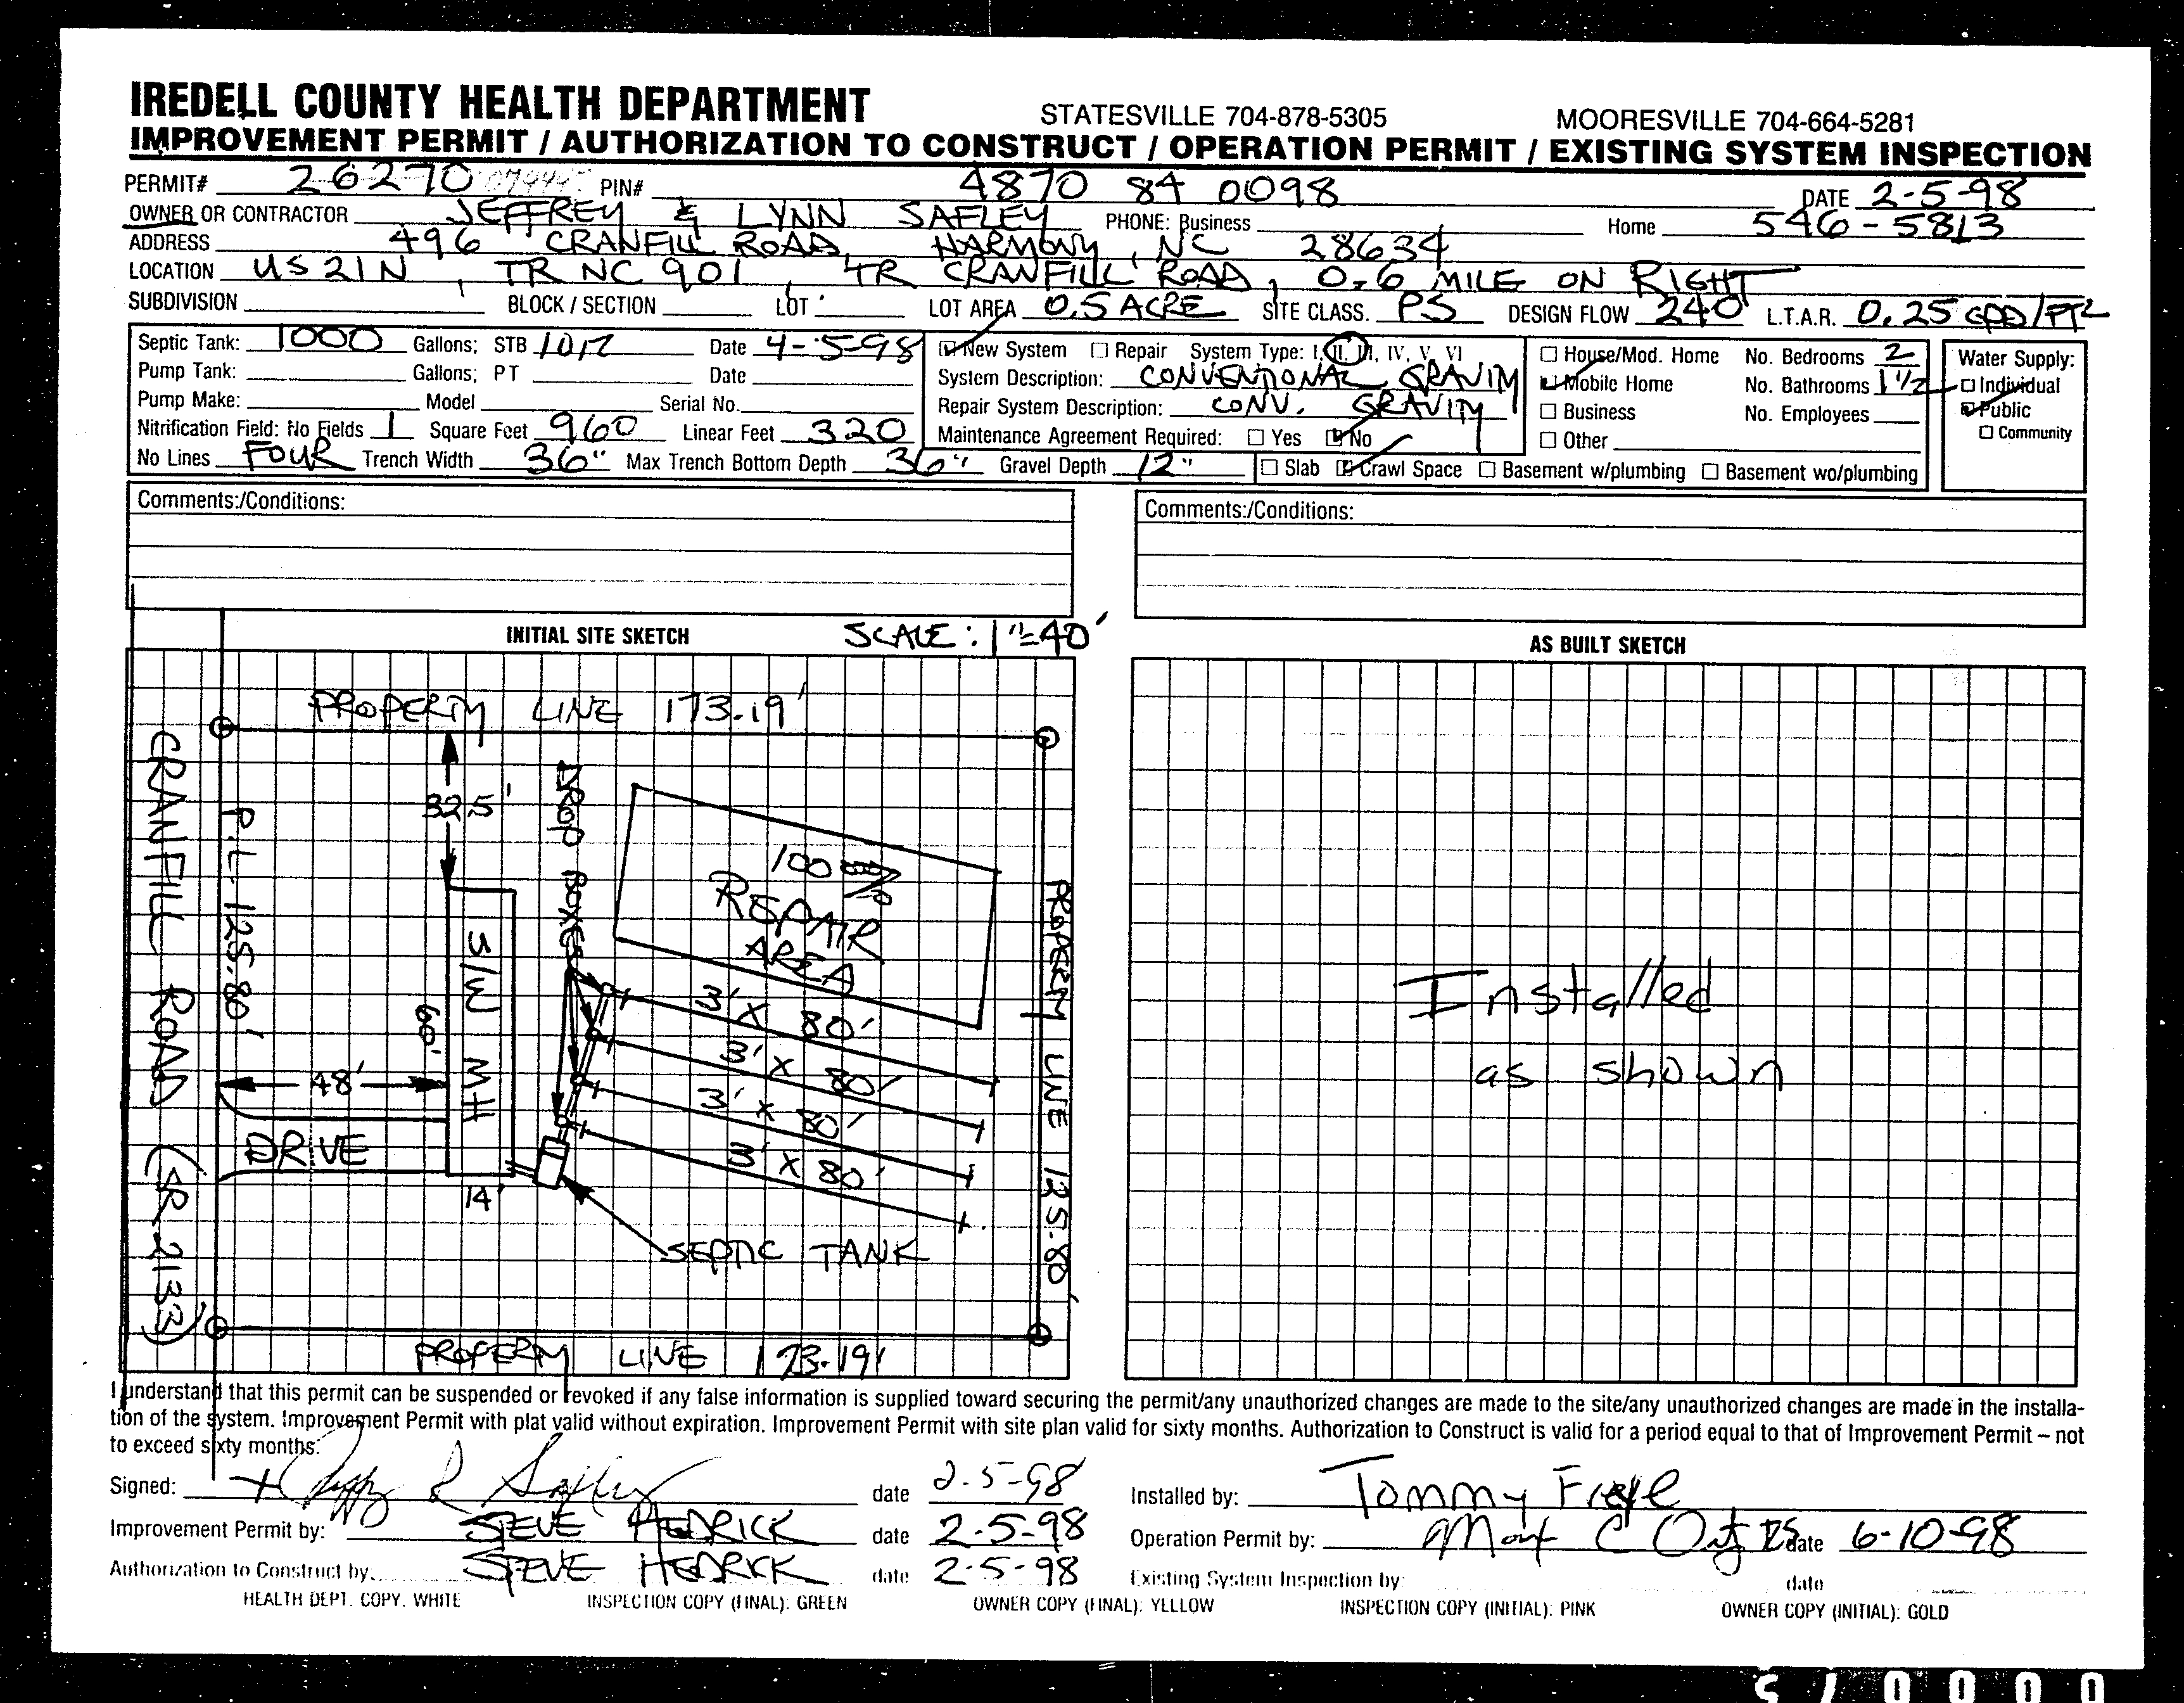 IREDELL COUNTY HEALTH DEPARTMENT STATESVILLE 704-878-5305 MOORESVILLE 704-664-5281
IMPROVEMENT PERMIT / AUTHORIZATION TO CONSTRUCT / OPERATION PERMIT / EXISTING SYSTEM INSPECTION
PERMIT# 26270 PIN# 4870 84 0098 DATE 2-5-98
OWNER OR CONTRACTOR JEFFREY & LYNN SAFLEY PHONE: Business Home 546-5813
ADDRESS 496 CRANFILL ROAD, HARMONY, NC 28634
LOCATION US 21 N, TR NC 901, TR CRANFILL ROAD, 0.6 MILE ON RIGHT
SUBDIVISION BLOCK / SECTION LOT LOT AREA 0.5 ACRE SITE CLASS. PS DESIGN FLOW 240 L.T.A.R. 0.25 GPD/FT²
Septic Tank: 1000 Gallons; STB Date 4-5-98
Pump Tank: Gallons; PT Date
Pump Make: Model Serial No.
Nitrification Field: No Fields 1 Square Feet 960 Linear Feet 320
No Lines FOUR Trench Width 36" Max Trench Bottom Depth 36" Gravel Depth 12"
New System Repair System Type: I, II, III, IV, V, VI
System Description: CONVENTIONAL GRAVITY
Repair System Description: CONV. GRAVITY
Maintenance Agreement Required: Yes No
Slab Crawl Space Basement w/plumbing Basement wo/plumbing
House/Mod. Home No. Bedrooms 2
Mobile Home No. Bathrooms 1 1/2
Business No. Employees
Other
Water Supply:
Individual
Public
Community
Comments:/Conditions:
Comments:/Conditions:
INITIAL SITE SKETCH SCALE: 1"=40'
AS BUILT SKETCH
PROPERTY LINE 173.19'
CRANFILL ROAD (SR 2133)
P.L. 125.80'
32.5'
DROP BOXES
100%
REPAIR
AREA
S/W MH
60'
48'
DRIVE
14'
3' X 80'
3' X 80'
3' X 80'
3' X 80'
SEPTIC TANK
PROPERTY LINE 125.80'
PROPERTY LINE 173.19'
Installed
as shown
I understand that this permit can be suspended or revoked if any false information is supplied toward securing the permit/any unauthorized changes are made to the site/any unauthorized changes are made in the installa-
tion of the system. Improvement Permit with plat valid without expiration. Improvement Permit with site plan valid for sixty months. Authorization to Construct is valid for a period equal to that of Improvement Permit – not
to exceed sixty months.
Signed: date 2-5-98
Improvement Permit by: STEVE HEDRICK date 2-5-98
Authorization to Construct by: STEVE HEDRICK date 2-5-98
Installed by: Tommy
Operation Permit by: date 6-10-98
Existing System Inspection by: date
HEALTH DEPT. COPY. WHITE INSPECTION COPY (FINAL): GREEN OWNER COPY (FINAL): YELLOW INSPECTION COPY (INITIAL): PINK OWNER COPY (INITIAL): GOLD